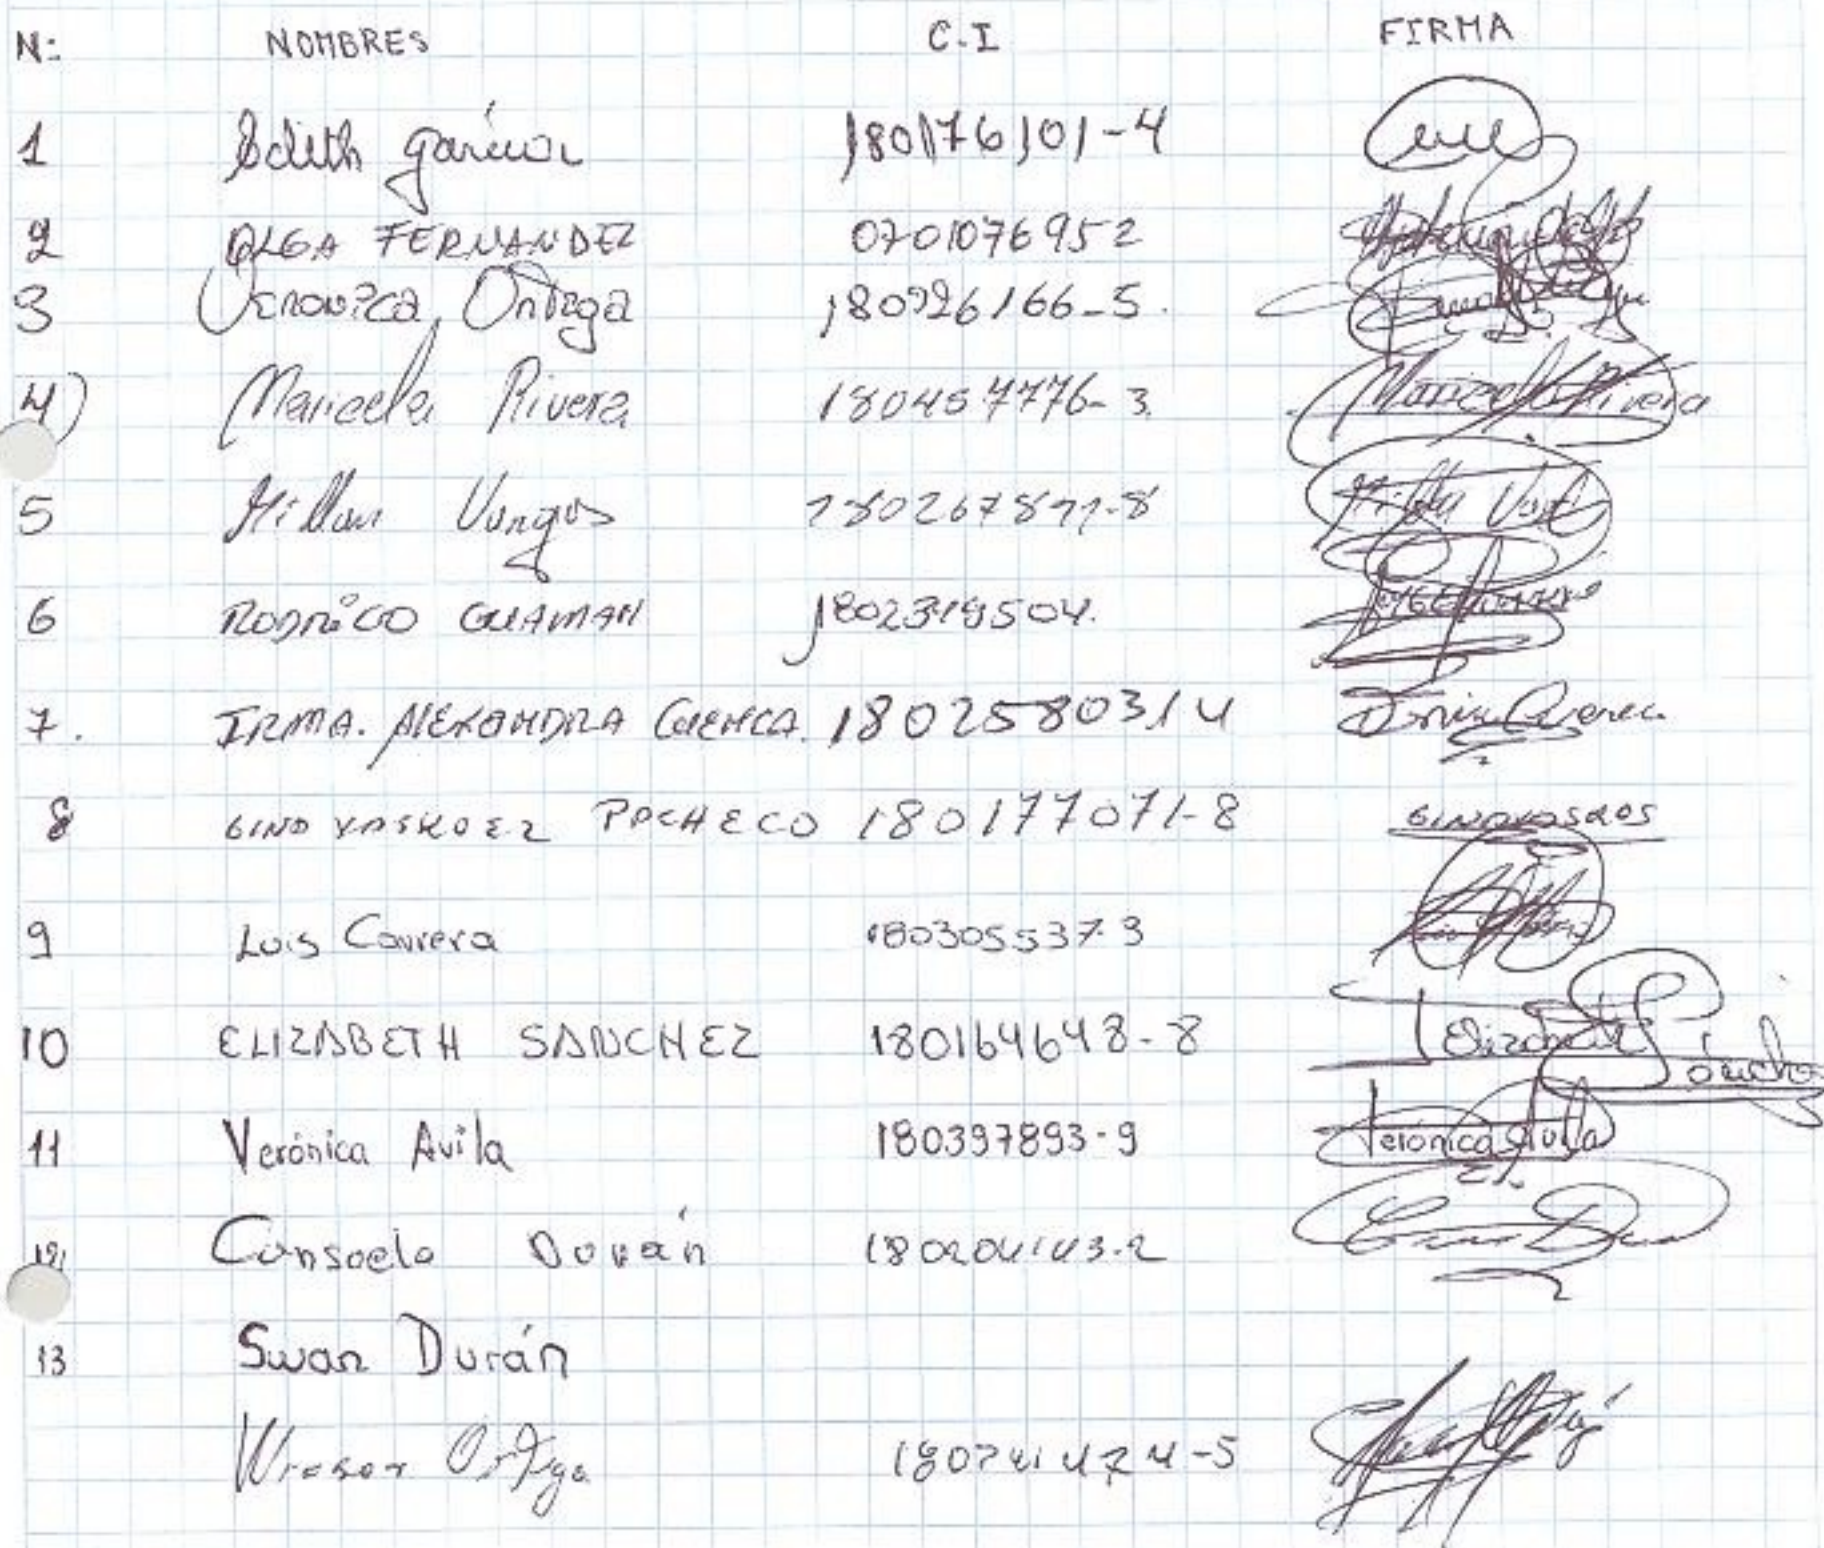 N: NOMBRES C.I FIRMA
1 Edith García 180176101-4
2 OLGA FERNANDEZ 0701076952
3 Veronica Ortega 180326166-5.
4) Maricela Rivera 180457776-3 Maricela Rivera
5 Vargas
6 RODRIGO GUAMAN
7. IRMA. ALEXANDRA CUENCA. 1802580314
8 GINO VASKOEZ PACHECO 180177071-8
9 Luis Carrera 180305537-3
10 ELIZABETH SANCHEZ 180164648-8 Elizabeth Sánchez
11 Verónica Avila 180397893-9 Verónica Avila
12 Consoelo Dorán 180204143-2
13 Swan Durán
Ortega